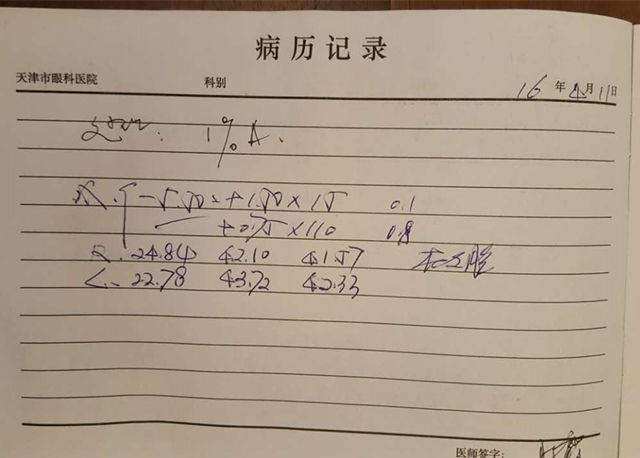 病历记录
天津市眼科医院 科别 16年4月11日
1% A.
-5.50 +1.50×15 0.1
+0.75×110 0.8
R. 24.84 42.10 41.57
L. 22.78 43.72 42.33
医师签字: